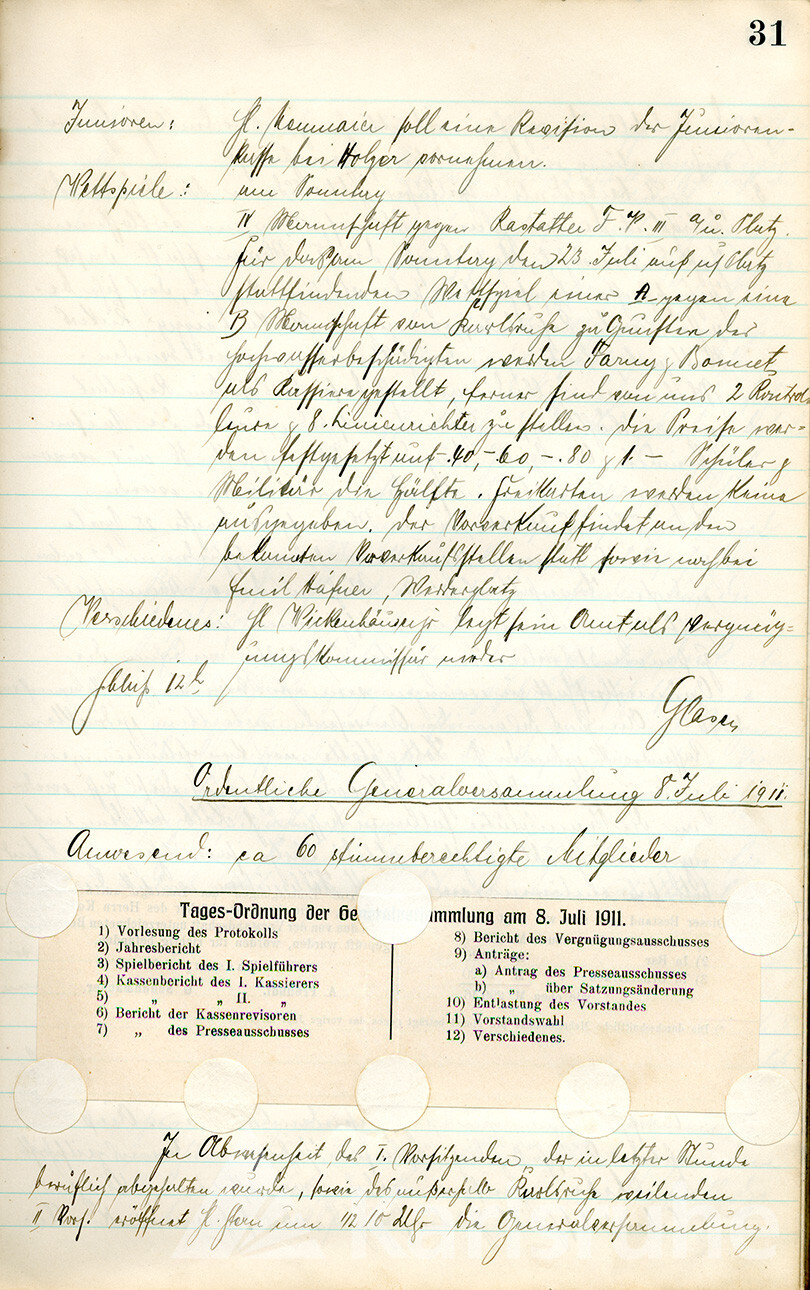 31
Junioren: H. Neumaier soll eine Revision der Junioren-
kasse bei Holzer vornehmen.
Wettspiele: am Sonntag
IV Mannschaft gegen Rastatter F. V. III a/u. Platz.
Für das am Sonntag den 23. Juli auf us Platz
stattfindenden Wettspiel einer A- gegen eine
B Mannschaft von Karlsruhe zu Gunsten der
Hochwasserbeschädigten werden Farny & Bonnet
als Kassiere gestellt, ferner sind von uns 2 Kontrol-
leure & 8. Linienrichter zu stellen. Die Preise wer=
den festgesetzt auf -.40, -.60, -.80 & 1.- Schüler &
Militär die Hälfte. Freikarten werden keine
ausgegeben. Der Vorverkauf findet an den
bekannten Vorverkaufsstellen statt sowie noch bei
Emil Häfner, Werderplatz
Verschiedenes: H Wickenhäuser legt sein Amt als Vergnüg=
ungskommissär nieder
Schluß 12h
Glaser
Ordentliche Generalversammlung 8. Juli 1911.
Anwesend: ca 60 stimmberechtigte Mitglieder
Tages-Ordnung der Ge mmlung am 8. Juli 1911.
1) Vorlesung des Protokolls
2) Jahresbericht
3) Spielbericht des I. Spielführers
4) Kassenbericht des I. Kassierers
5) „ „ II. „
6) Bericht der Kassenrevisoren
7) „ des Presseausschusses
8) Bericht des Vergnügungsausschusses
9) Anträge:
a) Antrag des Presseausschusses
b) „ über Satzungsänderung
10) Entlastung des Vorstandes
11) Vorstandswahl
12) Verschiedenes.
In Abwesenheit des I. Vorsitzenden, der in letzter Stunde
beruflich abgehalten wurde, sowie des außerhalb Karlsruhe weilenden
II Vors. eröffnet H. um 1/2 10 Uhr die Generalversammlung.